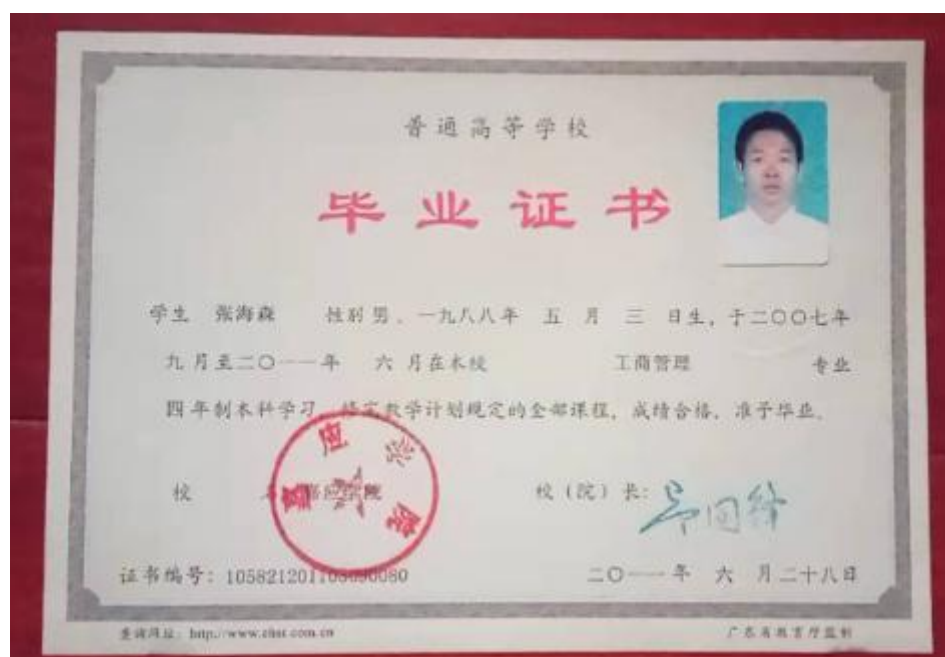 普通高等学校
毕业证书
学生 张海森 性别 男，一九八八年 五 月 三 日生，于二〇〇七年
九 月至二〇一一年 六 月在本校 工商管理 专业
四 年制本科学习，修完教学计划规定的全部课程，成绩合格，准予毕业。
校 名：嘉应学院 校（院）长：
嘉应学院
证书编号：105821201105090080
二〇一一年 六 月二十八日
查询网址：http://www.chsi.com.cn 广东省教育厅监制